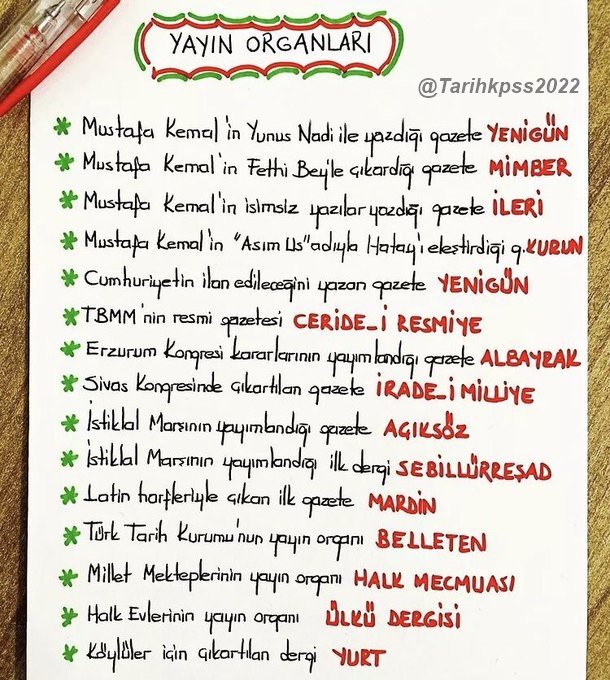 YAYIN ORGANLARI
@Tarihkpss2022
* Mustafa Kemal'in Yunus Nadi ile yazdığı gazete YENİGÜN
* Mustafa Kemal'in Fethi Bey'le çıkardığı gazete MİMBER
* Mustafa Kemal'in isimsiz yazılar yazdığı gazete İLERİ
* Mustafa Kemal'in "Asım Us" adıyla Hatay'ı eleştirdiği g. KURUN
* Cumhuriyetin ilan edileceğini yazan gazete YENİGÜN
* TBMM'nin resmi gazetesi CERİDE_İ RESMİYE
* Erzurum Kongresi kararlarının yayımlandığı gazete ALBAYRAK
* Sivas Kongresinde çıkartılan gazete İRADE_İ MİLLİYE
* İstiklal Marşının yayımlandığı gazete AÇIKSÖZ
* İstiklal Marşının yayımlandığı ilk dergi SEBİLLÜRREŞAD
* Latin harfleriyle çıkan ilk gazete MARDİN
* Türk Tarih Kurumu'nun yayın organı BELLETEN
* Millet Mekteplerinin yayın organı HALK MECMUASI
* Halk Evlerinin yayın organı ÜLKÜ DERGİSİ
* Köylüler için çıkartılan dergi YURT